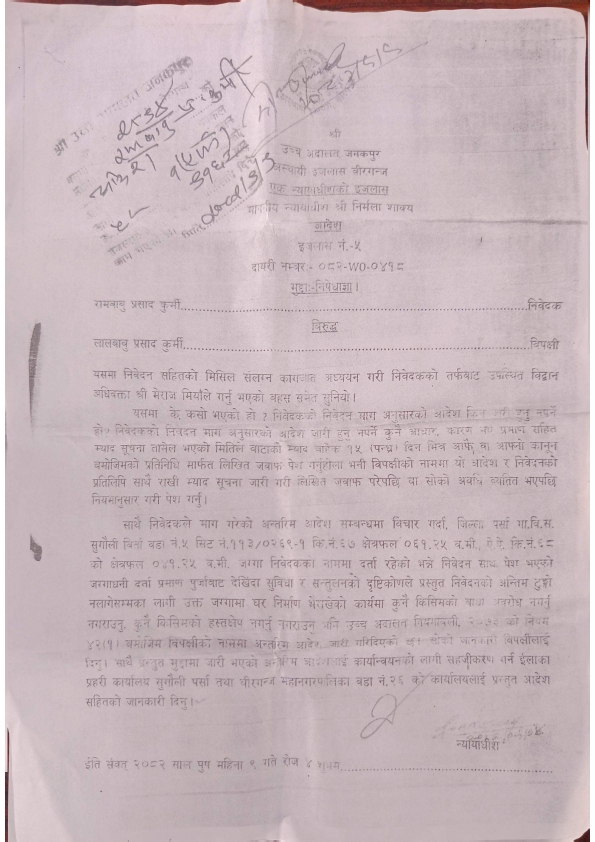 श्री
उच्च अदालत जनकपुर
अस्थायी इजलास वीरगन्ज
एक न्यायाधीशको इजलास
माननीय न्यायाधीश श्री निर्मला शाक्य
आदेश
इजलास नं.-५
दायरी नम्बर:- ०८२-WO-०४१८
मुद्दा:-निषेधाज्ञा।
रामबाबु प्रसाद कुर्मी............निवेदक
विरुद्ध
लालबाबु प्रसाद कुर्मी............विपक्षी
यसमा निवेदन सहितको मिसिल संलग्न कागजात अध्ययन गरी निवेदकको तर्फबाट उपस्थित विद्वान
अधिवक्ता श्री मेराज मियाँले गर्नु भएको बहस समेत सुनियो।
यसमा के कसो भएको हो ? निवेदकको निवेदन माग अनुसारको आदेश किन जारी हुनु नपर्ने
हो? निवेदकको निवेदन माग अनुसारको आदेश जारी हुनु नपर्ने कुनै आधार, कारण भए प्रमाण सहित
म्याद सूचना तामेल भएको मितिले बाटाको म्याद बाहेक १५ (पन्ध्र) दिन भित्र आफै वा आफ्नो कानून
बमोजिमको प्रतिनिधि मार्फत लिखित जवाफ पेश गर्नुहोला भनी विपक्षीको नाममा यो आदेश र निवेदनको
प्रतिलिपि साथै राखी म्याद सूचना जारी गरी लिखित जवाफ परेपछि वा सोको अवधि व्यतित भएपछि
नियमानुसार गरी पेश गर्नु।
साथै निवेदकले माग गरेको अन्तरिम आदेश सम्बन्धमा विचार गर्दा, जिल्ला पर्सा गा.वि.स.
सुगौली बिर्ता वडा नं.५ सिट नं.११३/०२६९-१ कि.नं.६७ क्षेत्रफल ०६१.२५ व.मी., ऐ.ऐ. कि.नं.६८
को क्षेत्रफल ०४१.२५ व.मी. जग्गा निवेदकका नाममा दर्ता रहेको भन्ने निवेदन साथ पेश भएको
जग्गाधनी दर्ता प्रमाण पुर्जाबाट देखिंदा सुविधा र सन्तुलनको दृष्टिकोणले प्रस्तुत निवेदनको अन्तिम टुङ्गो
नलागेसम्मका लागी उक्त जग्गामा घर निर्माण भैराखेको कार्यमा कुनै किसिमको बाधा अवरोध नगर्नु
नगराउनु, कुनै किसिमको हस्तक्षेप नगर्नु नगराउनु भनि उच्च अदालत नियमावली, २०७३ को नियम
४२(१) बमोजिम विपक्षीको नाममा अन्तरिम आदेश जारी गरिदिएको छ। सोको जानकारी विपक्षीलाई
दिनु। साथै प्रस्तुत मुद्दामा जारी भएको अन्तरिम आदेशलाई कार्यान्वयनको लागी सहजीकरण गर्न ईलाका
प्रहरी कार्यालय सुगौली पर्सा तथा वीरगन्ज महानगरपालिका वडा नं.२६ को कार्यालयलाई प्रस्तुत आदेश
सहितको जानकारी दिनु।
न्यायाधीश
ईति संवत् २०८२ साल पुष महिना ९ गते रोज ४ शुभम्............